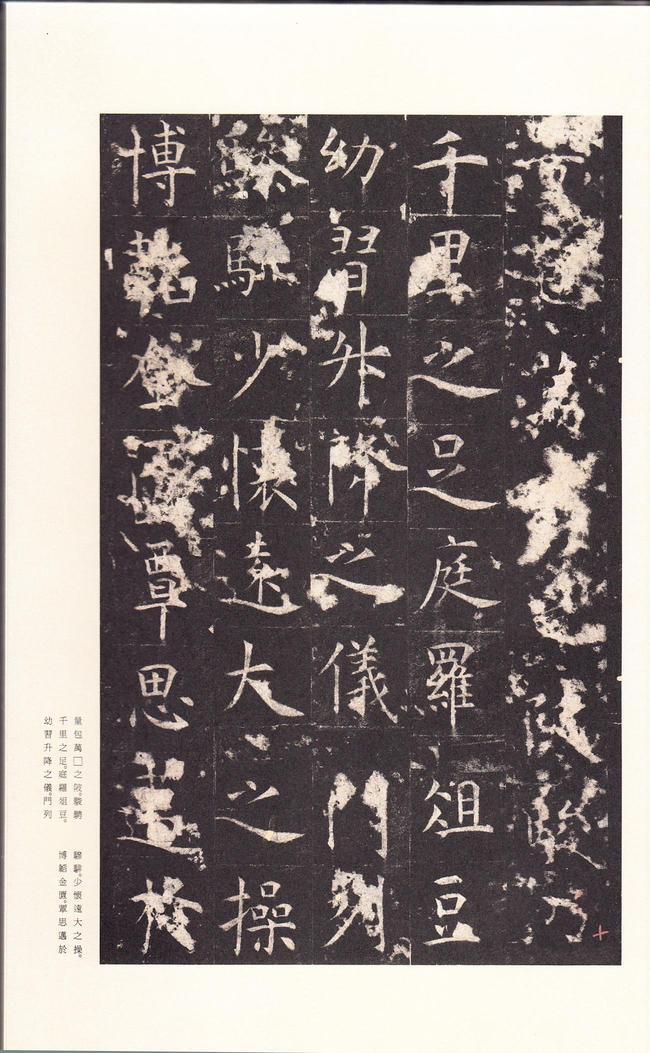 量包萬之陂駿
千里之足庭羅俎豆
幼習升降之儀門列
驂騑少懷遠大之操
博韜金匱覃思邁於
量包萬□之陂。駿騁
千里之足。庭羅俎豆。
幼習升降之儀。門列
驂騑。少懷遠大之操。
博韜金匱。覃思邁於